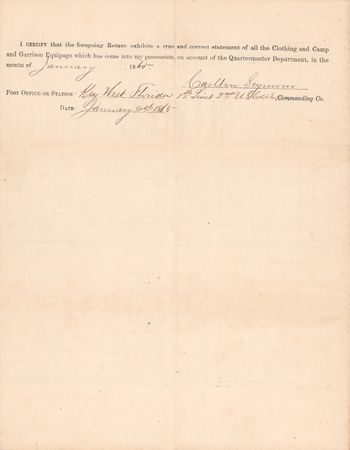 I CERTIFY that the foregoing Return exhibits a true and correct statement of all the Clothing and Camp
and Garrison Equipage which has come into my possession, on account of the Quartermaster Department, in the
month of January 1865.
Carlton Seymour
POST OFFICE OR STATION: Key West Florida 1st Lieut 2nd U.S. Commanding Co.
DATE: January 1865